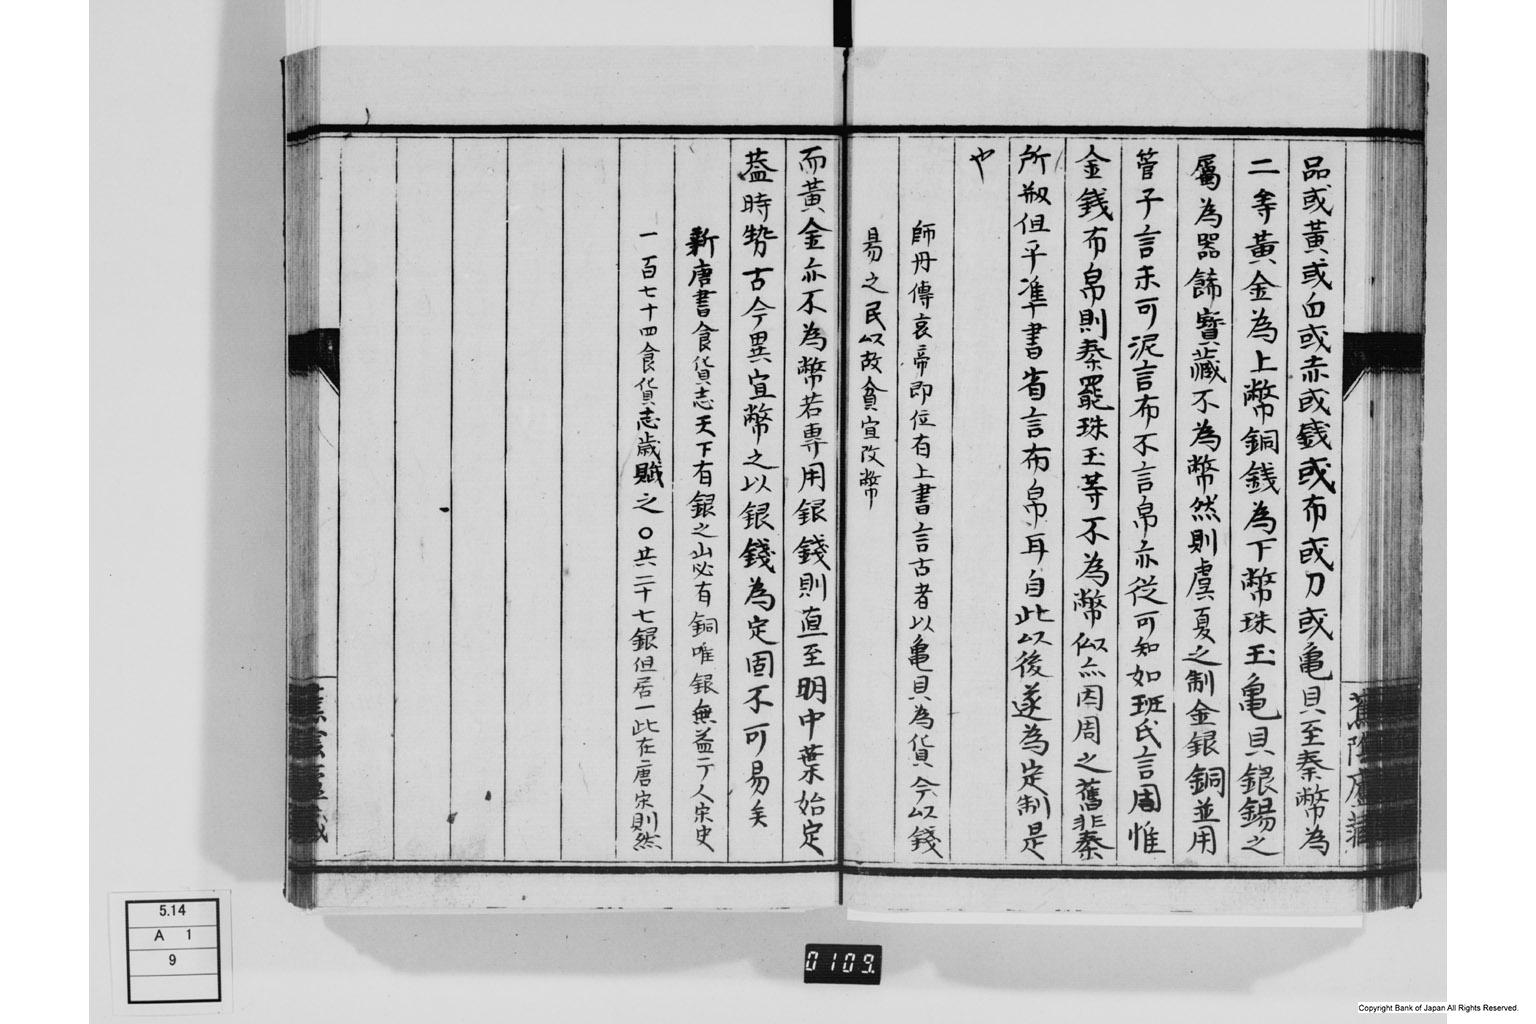 品或黄或白或赤或錢或布或刀或亀貝至秦幣為
二等黄金為上幣銅銭為下幣珠玉亀貝銀錫之
屬為器飾寳藏不為幣然則虞夏之制金銀銅並用
管子言未可泥言布不言帛亦從可知如班氏言周惟
金錢布帛則秦罷珠玉等不為幣似亦因周之舊非秦
所刱但平準書省言布帛耳自此以後遂為定制是
也
師丹傳哀帝即位有上書言古者以亀貝為貨今以錢
易之民以故貧宜改幣
而黄金亦不為幣若専用銀錢則直至明中葉始定
葢時勢古今異宜幣之以銀錢為定固不可易矣
新唐書食貨志天下有銀之山必有銅唯銀無益于人宋史
一百七十四食貨志歳賦之〇共二十七銀但居一此在唐宋則然
蕉陰廬藏
5.14
A 1
9
0109.
Copyright Bank of Japan All Rights Reserved.